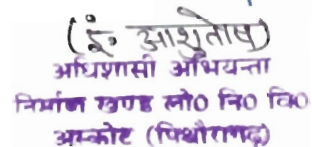 (इं० आशुतोष)
अधिशासी अभियन्ता
निर्माण खण्ड लो० नि० वि०
अस्कोट (पिथौरागढ़)